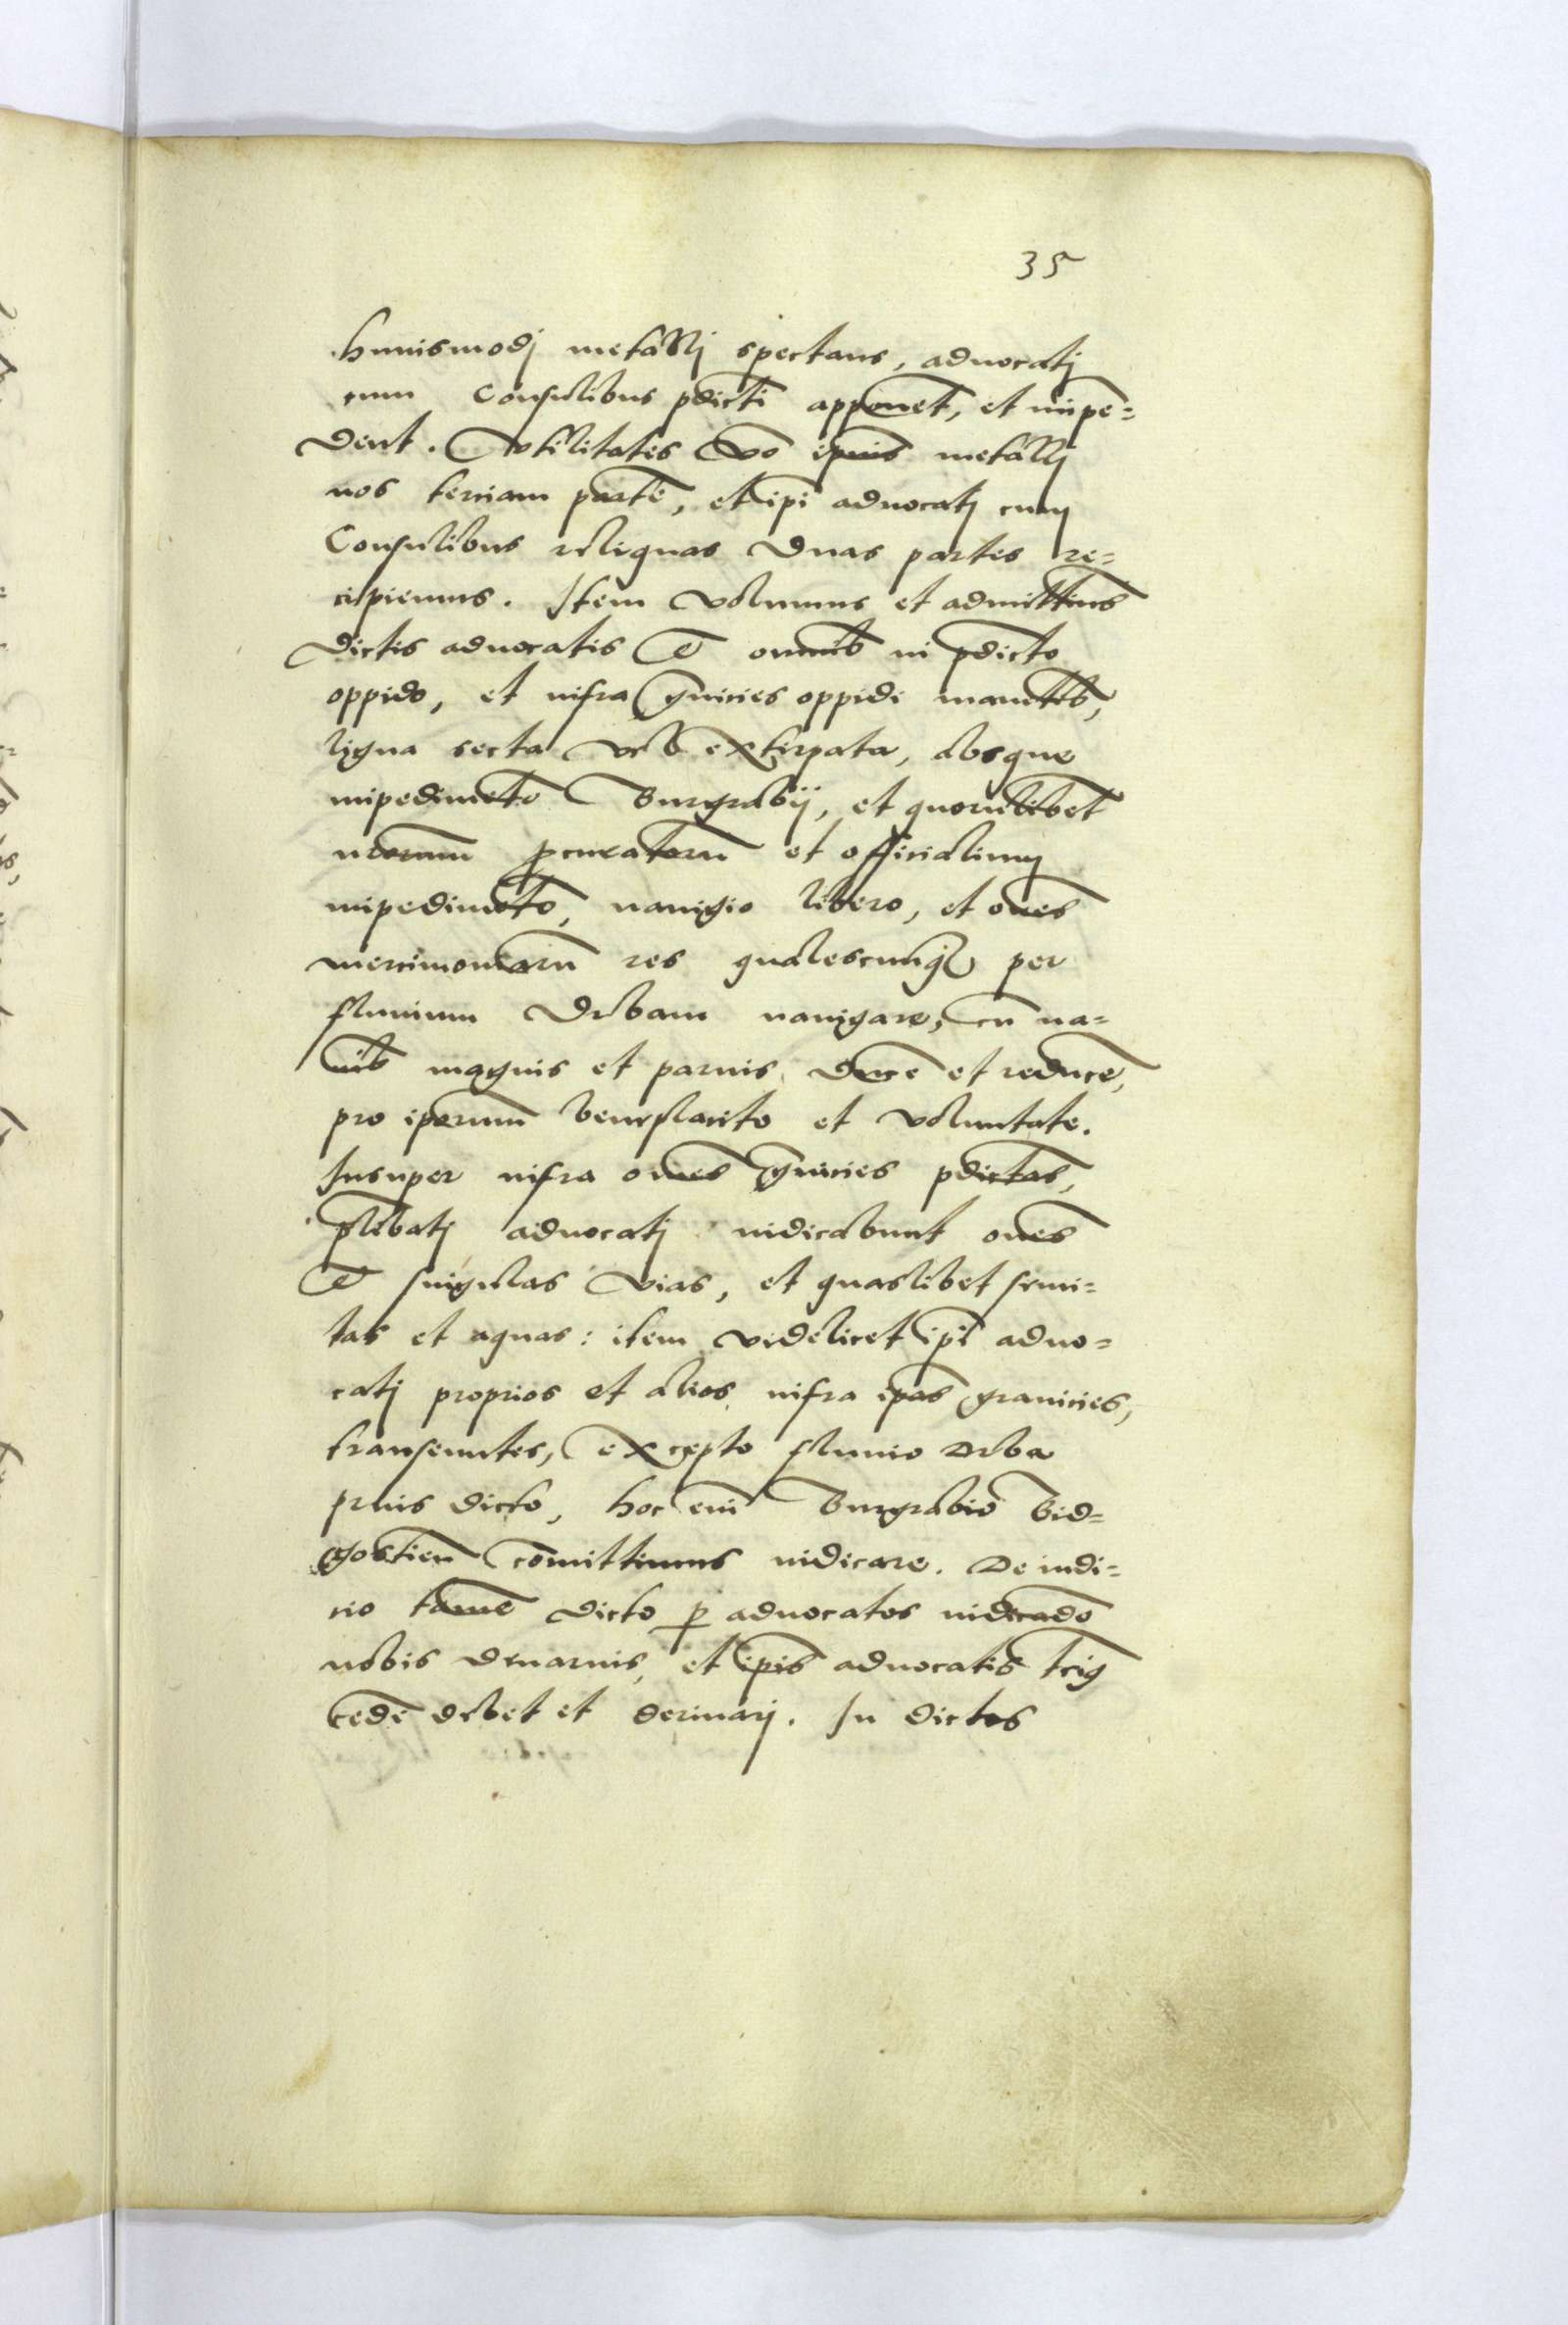 35
huiusmodj metallj spectans, aduocatj
cum Consulibus pdicti apponēt, et impe=
dent. Vtilitates v̄o ipīus metallj
nos terciam partē, et ipī aduocatj cum
Consulibus reliquas duas partes re=
cipiemus. Item volumus et admittim̄s
dictis aduocatis et omnib in pdicto
oppido, et infra gnicies oppidi manētib,
ligna secta vel extirpata, absque
impedimēto Burgrabij, et quorūlibet
nrorum pcuratorū et officialium
impedimēto, nauigio libero, et oēs
mercimoniarū res qualescunq per
fluuium Debram nauigare, cū na=
uib magnis et paruis, ducē et reducē,
pro ipsorum beneplacito et voluntate.
Insuper infra oēs gnicies pdictas,
plibatj aduocatj iudicabunt oēs
et singulas vias, et quaslibet semi=
tas et aquas: item videlicet ipī aduo=
catj proprios et alios, infra ipas granicies,
transeuntes, excepto fluuio Debra
prius dicto, hoc eni Burgrabio Bid=
gostien comittimus iudicare. De iudi=
cio tamē dicto p aduocatos iudicādo
nobis denarius, et ipis aduocatis
cedē debet et deriuarj. In dictos